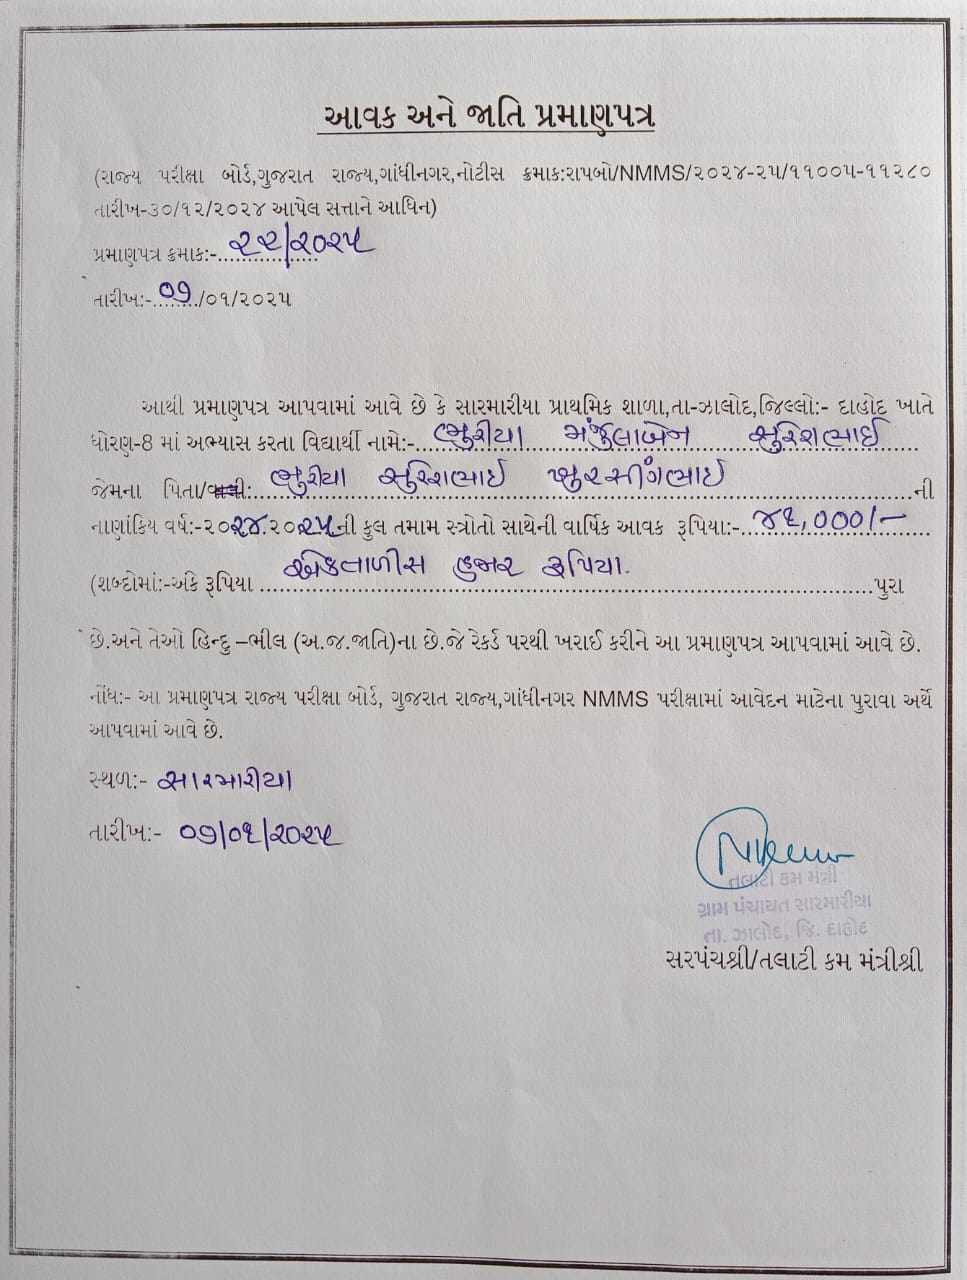 આવક અને જાતિ પ્રમાણપત્ર
(રાજ્ય પરીક્ષા બોર્ડ,ગુજરાત રાજ્ય,ગાંધીનગર,નોટીસ ક્રમાક:રાપબો/NMMS/૨૦૨૪-૨૫/૧૧૦૦૫-૧૧૨૮૦
તારીખ-૩૦/૧૨/૨૦૨૪ આપેલ સત્તાને આધિન)
પ્રમાણપત્ર ક્રમાક:-..૨૨/૨૦૨૫
તારીખ:-..૦૭../૦૧/૨૦૨૫
આથી પ્રમાણપત્ર આપવામાં આવે છે કે સારમારીયા પ્રાથમિક શાળા,તા-ઝાલોદ,જિલ્લો:- દાહોદ ખાતે
ધોરણ-8 માં અભ્યાસ કરતા વિદ્યાર્થી નામે:- ભુરીયા મંજુલાબેન સુરેશભાઈ
જેમના પિતા/વાલી: ભુરીયા સુરેશભાઈ ખુરસીંગભાઈ ની
નાણાંકિય વર્ષ:-૨૦૨૪.૨૦૨૫ની કુલ તમામ સ્ત્રોતો સાથેની વાર્ષિક આવક રૂપિયા:- ૪૧,૦૦૦/-
(શબ્દોમાં:-અંકે રૂપિયા એકતાળીસ હજાર રૂપિયા. પુરા
છે.અને તેઓ હિન્દુ –ભીલ (અ.જ.જાતિ)ના છે.જે રેકર્ડ પરથી ખરાઈ કરીને આ પ્રમાણપત્ર આપવામાં આવે છે.
નોંધ:- આ પ્રમાણપત્ર રાજ્ય પરીક્ષા બોર્ડ, ગુજરાત રાજ્ય,ગાંધીનગર NMMS પરીક્ષામાં આવેદન માટેના પુરાવા અર્થે
આપવામાં આવે છે.
સ્થળ:- સારમારીયા
તારીખ:- ૦૭/૦૧/૨૦૨૫
તલાટી કમ મંત્રી
ગ્રામ પંચાયત સારમારીયા
તા. ઝાલોદ, જિ. દાહોદ
સરપંચશ્રી/તલાટી કમ મંત્રીશ્રી